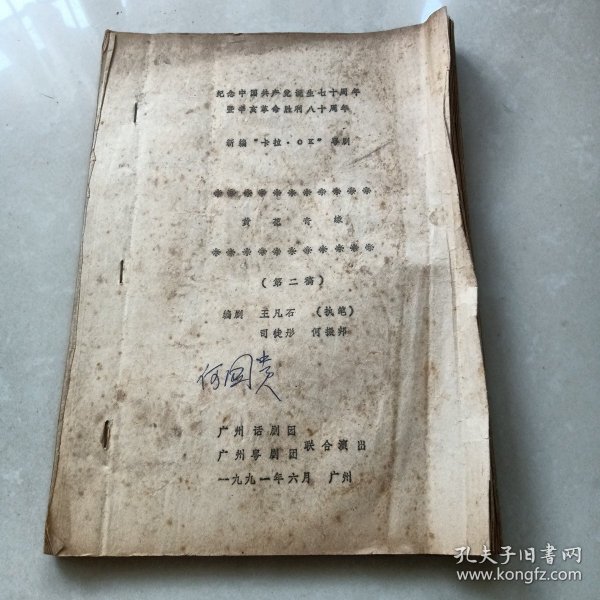 纪念中国共产党诞生七十周年
暨辛亥革命胜利八十周年
新编“卡拉·OK”粤剧
黄花青缘
(第二稿)
编剧 王凡石 (执笔)
司徒彤 何振邦
何国贵
广州话剧团
广州粤剧团 联合演出
一九九一年六月 广州
孔夫子旧书网
www.kongfz.com